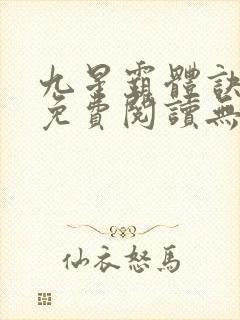 九星霸體訣
免費閱讀無
仙衣怒馬